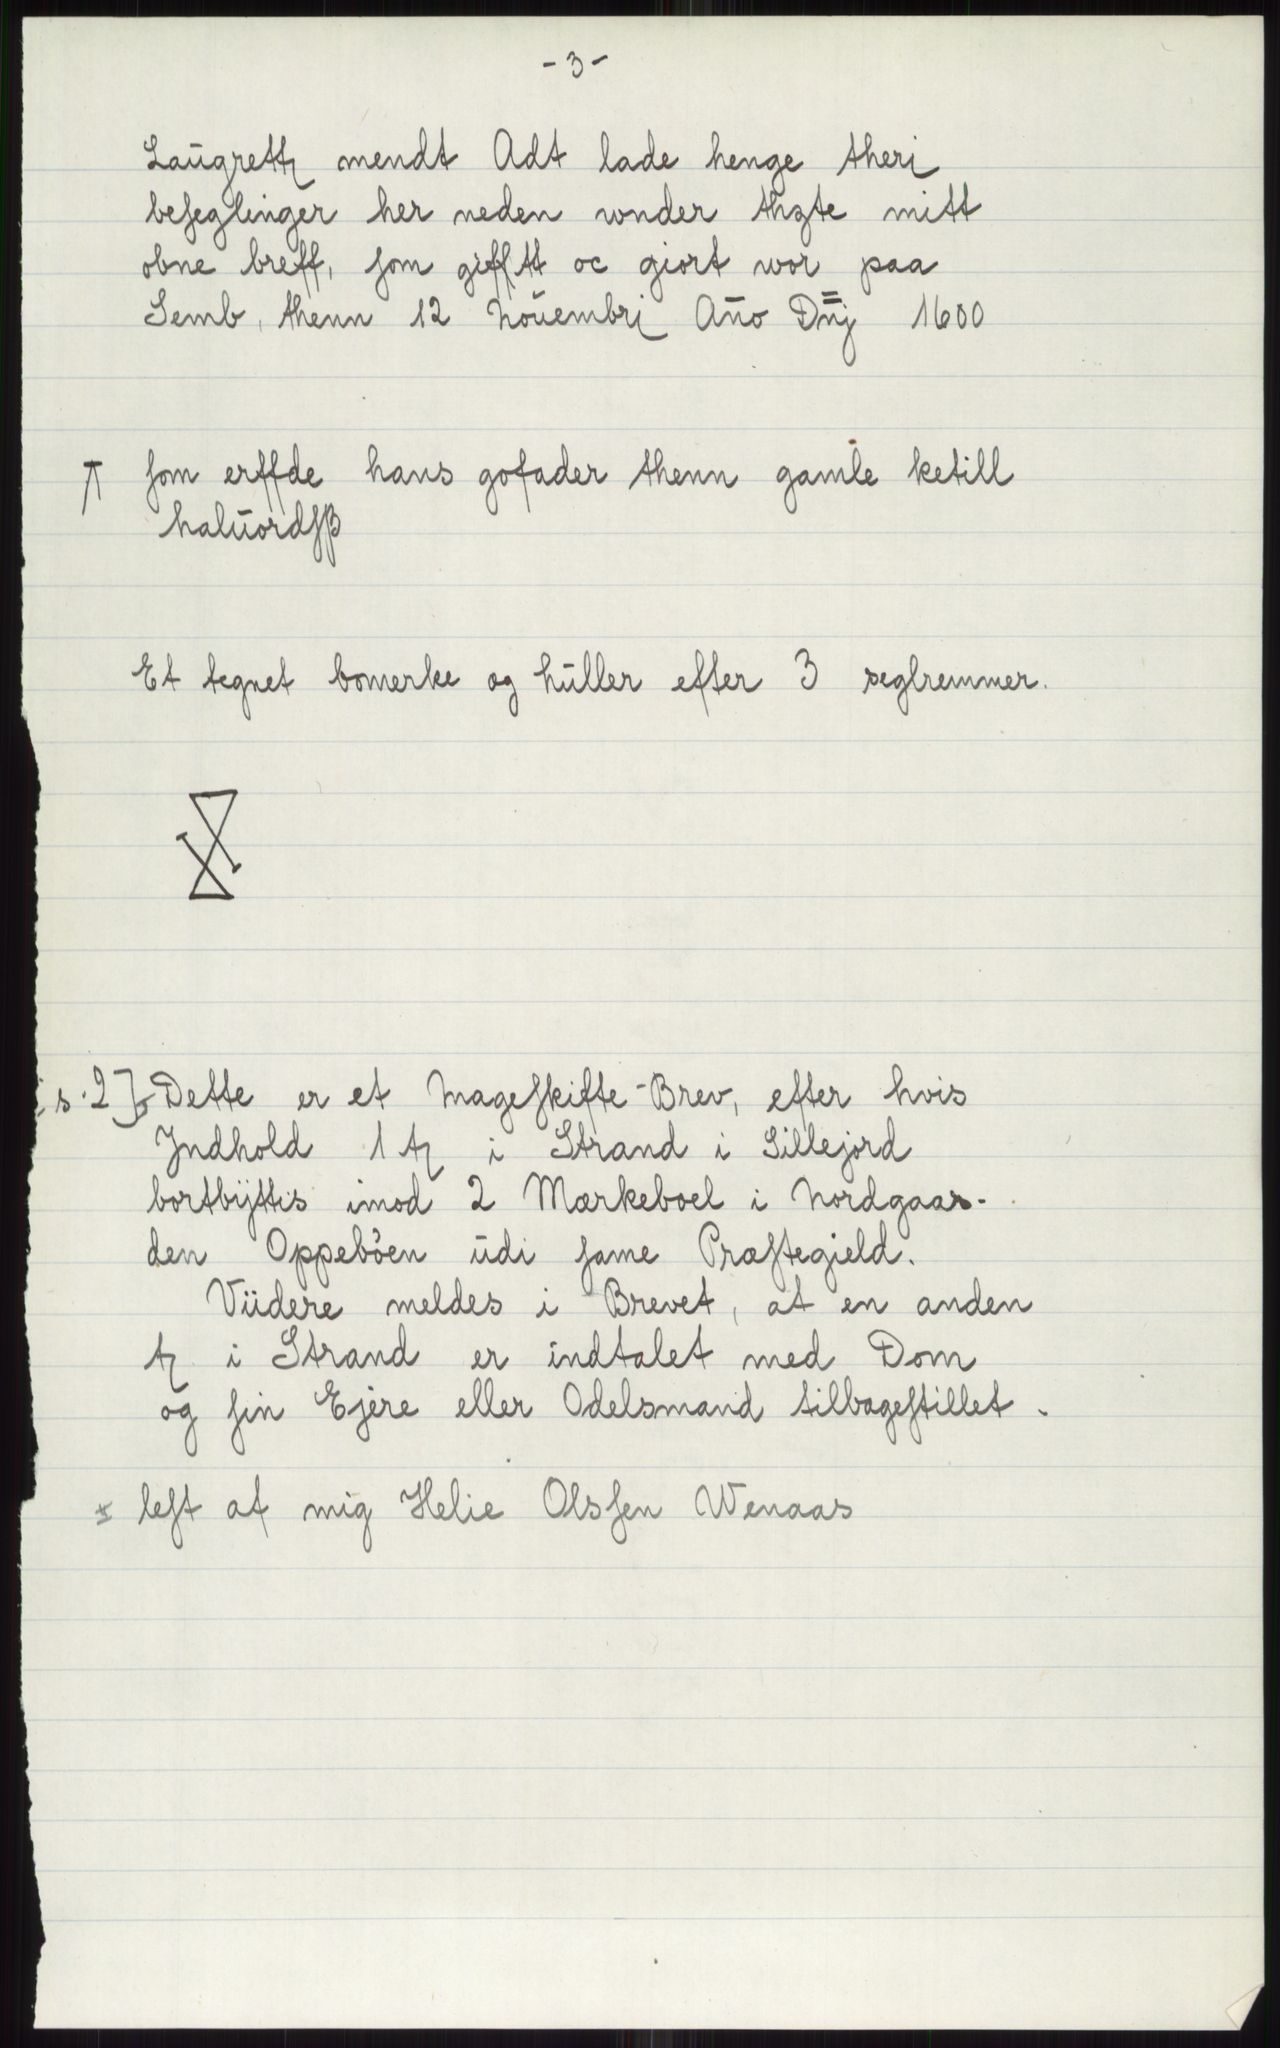 - 3 -
Laugrettꝭ mendt Adt lade henge theri
beſeglinger her neden wnder thzte mitt
obne breff, ſom gifftt oc giort wor paa
Semb, thenn 12 Nouembrj Ano Dnj 1600
ſom erffde hans gofader thenn gamle ketill
haluordſß
Et tegnet bomerke og huller efter 3 seglremmer.
[s. 2] Dette er et Mageſkifte-Brev, efter hvis
Jndhold 1 tꝭ i Strand i Sillejord
bortbÿttis imod 2 Mærkeboel i Nordgaar-
den Oppebøen udi ſame Præſtegield.
Viidere meldes i Brevet, at en anden
tꝭ i Strand er indtalet med Dom
og ſin Ejere eller Odelsmand tilbageſtillet.
* leſt af mig Helie Olsſen Wenaas